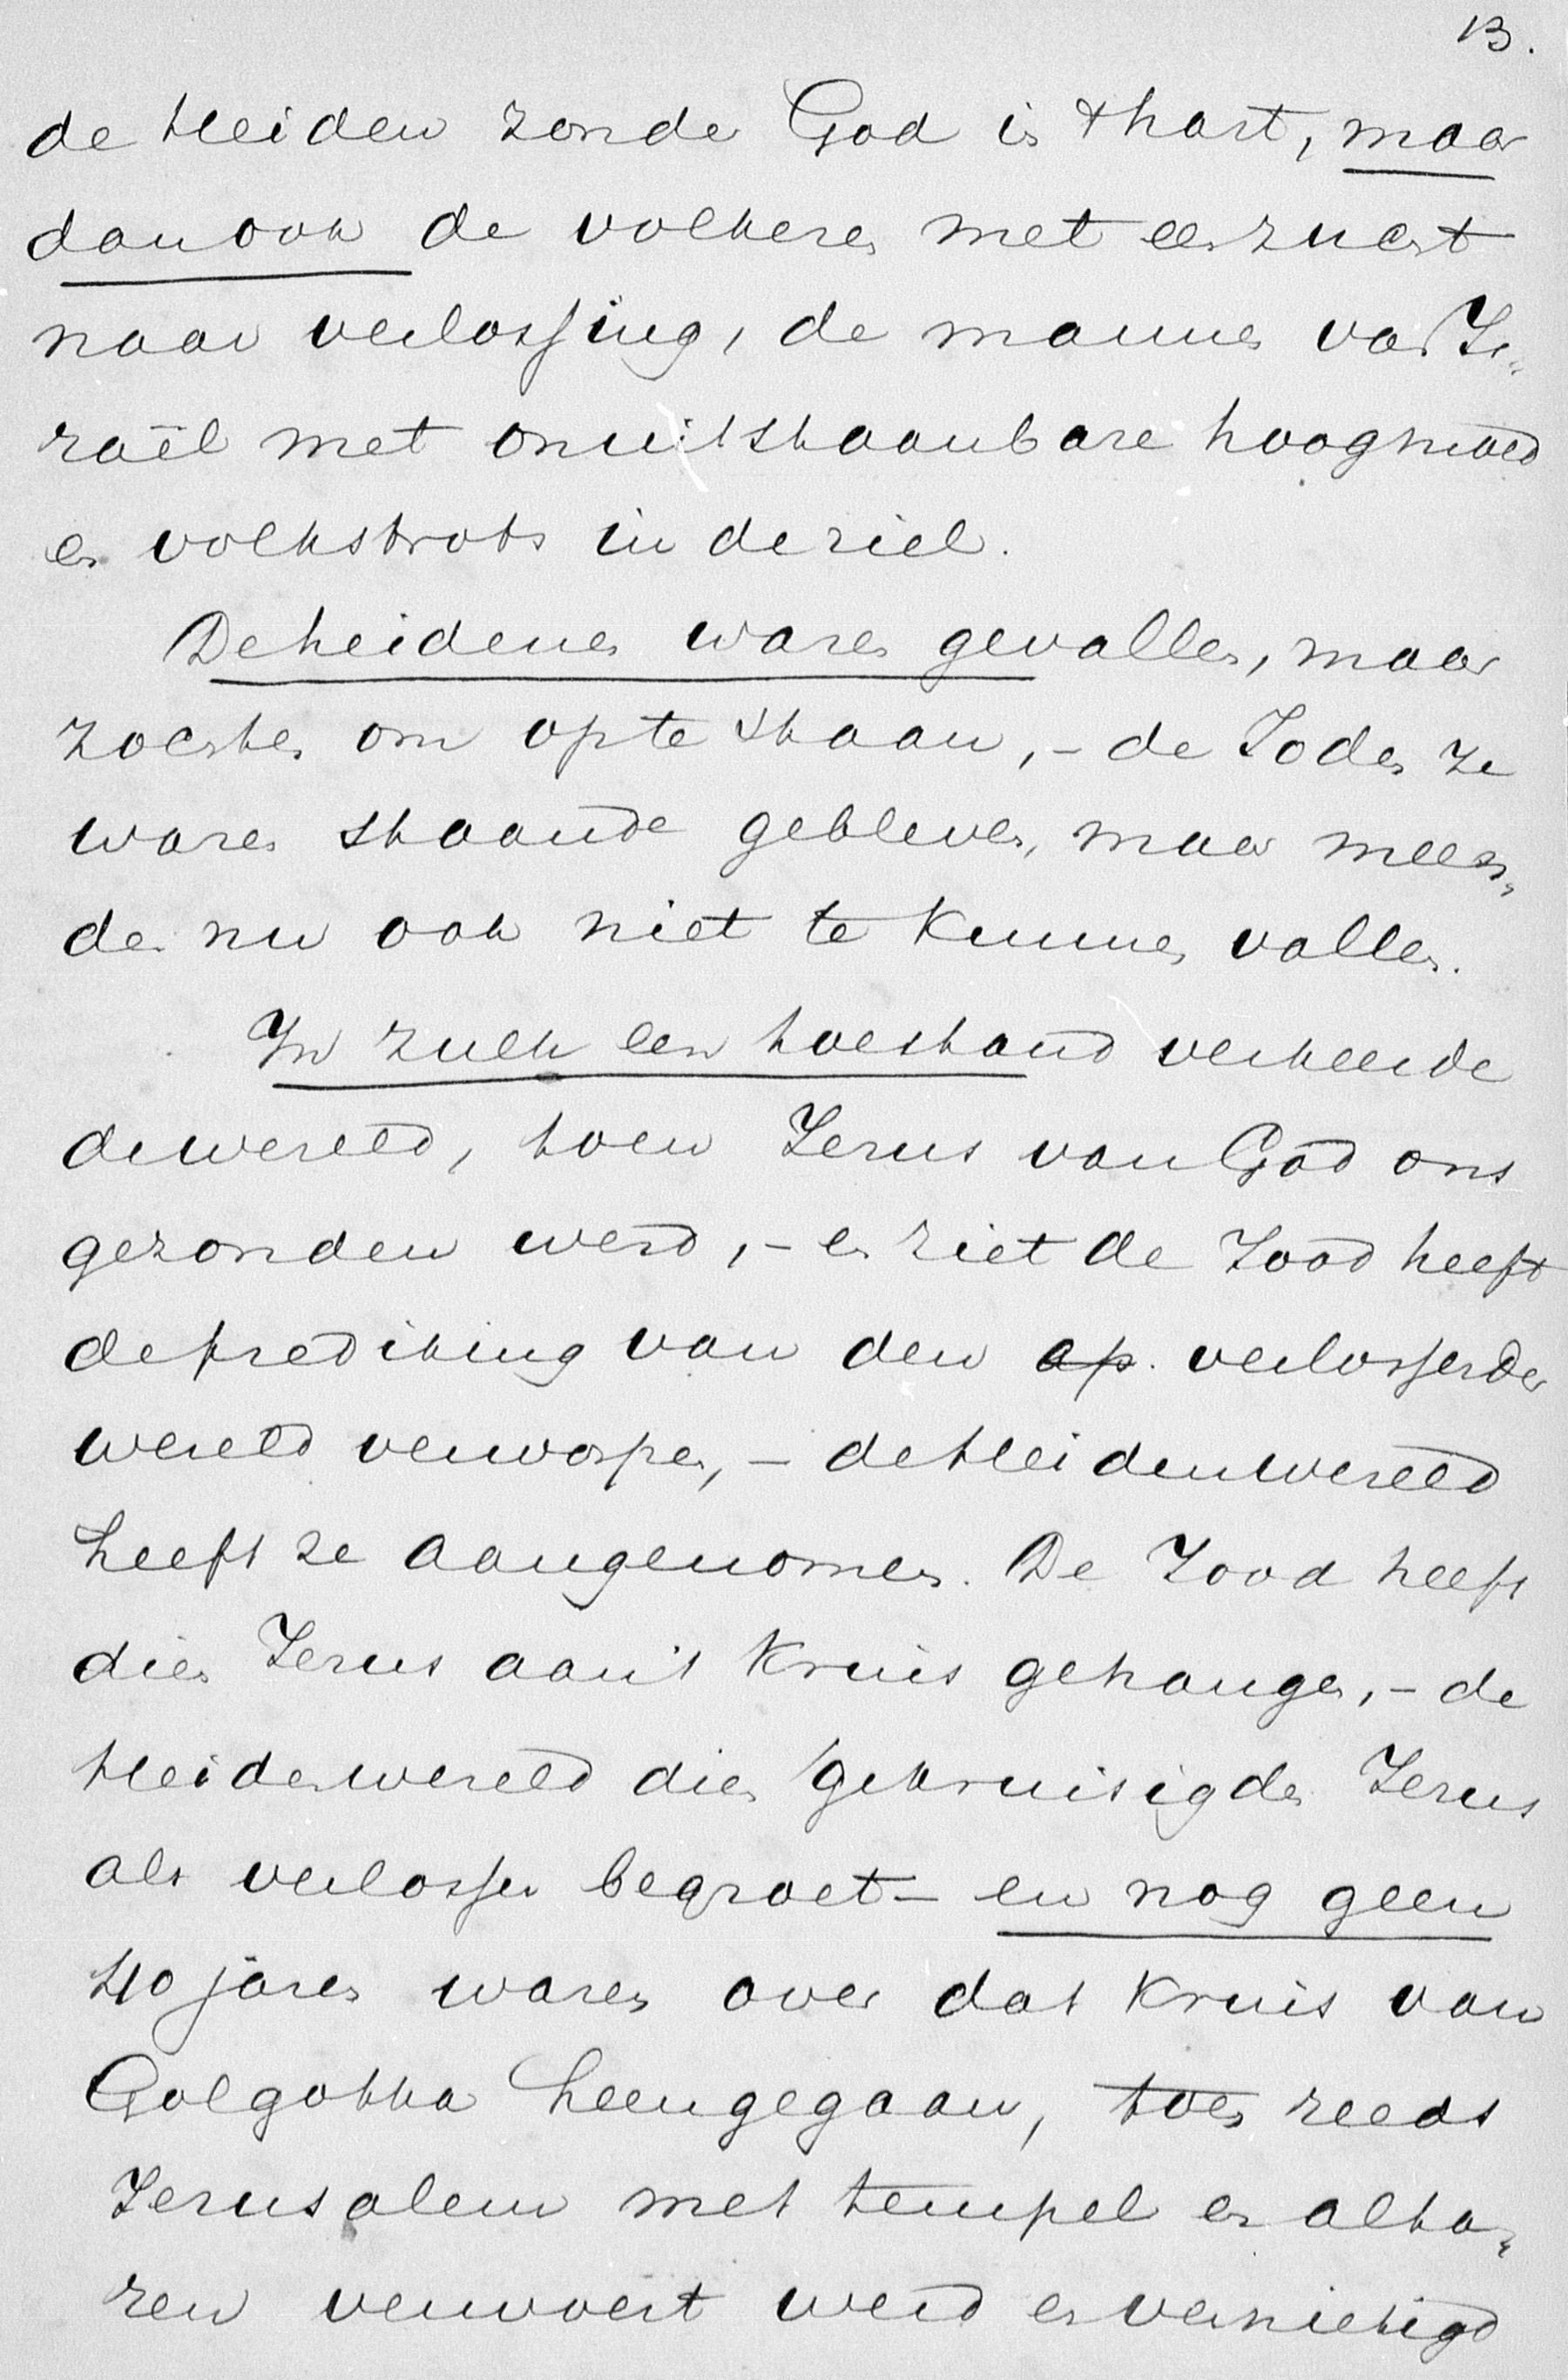 13.
de Heiden zonde God in 't hart, maar
dan ook de volkeren met een zucht
naar verlossing, de mannen van Is-
raël met onuitstaanbare hoogmoed
en volkstrots in de ziel.
De heidenen waren gevallen, maar
zochten om op te staan, - de Joden ze
waren staande gebleven, maar meen-
den nu ook niet te kunnen vallen.
In zulk een toestand verkeerde
de wereld, toen Jezus van God ons
gezonden werd, - en ziet de Jood heeft
de prediking van den ap. verlosser der
wereld verworpen, - de Heidenwereld
heeft ze aangenomen. De Jood heeft
dien Jezus aan 't Kruis gehangen, - de
Heidenwereld dien gekruisigden Jezus
als verlosser begroet - en nog geen
40 jaren waren over dat Kruis van
Golgotha heengegaan, toen reeds
Jeruzalem met tempel en alta-
ren verwoest werd en vernietigd